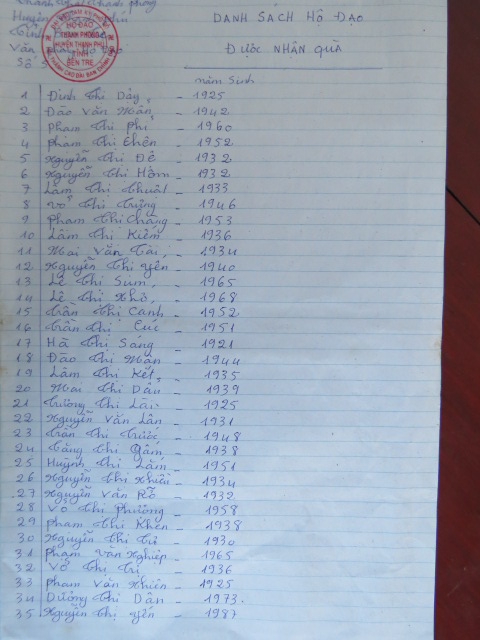 DANH SÁCH HỘ ĐẠO
ĐƯỢC NHẬN QUÀ
HỘ ĐẠO
THÀNH PHONG
HUYỆN THẠNH PHÚ
TỈNH
BẾN TRE
năm Sinh
1 Đinh Thị Dảy - 1925
2 Đào Văn Mẫn - 1942
3 Phạm Thị Phỉ - 1960
4 Phạm Thị Chén - 1952
5 Nguyễn Thị Đê - 1932
6 Nguyễn Thị Hớm - 1932
7 Lâm Thị Thuật - 1933
8 Võ Thị Trừng - 1946
9 Phạm Thị Chẳng - 1953
10 Lâm Thị Kiếm - 1936
11 Mai Văn Tài - 1934
12 Nguyễn Thị Yên - 1940
13 Lê Thị Sum - 1965
14 Lê Thị Nhỏ - 1968
15 Trần Thị Canh - 1952
16 Trần Thị Cúc - 1951
17 Hà Thị Sáng - 1921
18 Đào Thị Mận - 1944
19 Lâm Thị Kết - 1935
20 Mai Thị Dân - 1939
21 Trương Thị Lài - 1925
22 Nguyễn Văn Lân - 1931
23 Trần Thị Trước - 1948
24 Tăng Thị Gấm - 1938
25 Huỳnh Thị Lắm - 1951
26 Nguyễn Thị Nhiều - 1934
27 Nguyễn Văn Rỡ - 1932
28 Võ Thị Phường - 1958
29 Phạm Thị Khen - 1938
30 Nguyễn Thị Tư - 1930
31 Phạm Văn Nghiệp - 1965
32 Võ Thị Trị - 1936
33 Phạm Văn Nhiên - 1925
34 Dương Thị Dân - 1973.
35 Nguyễn Thị Yến - 1987